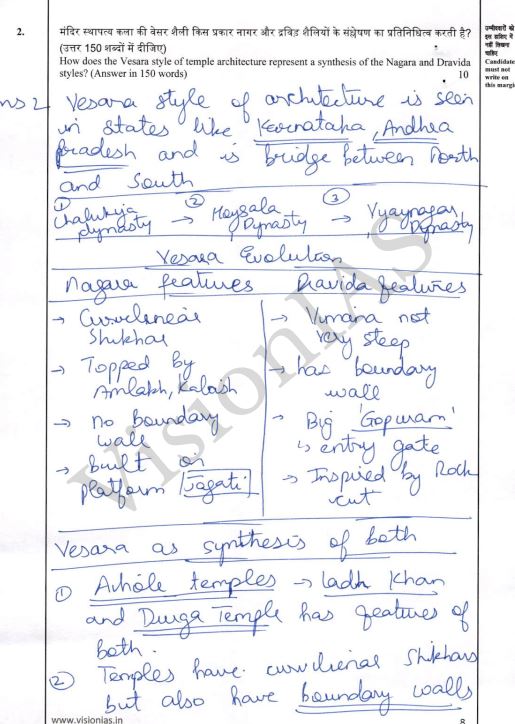 2.
मंदिर स्थापत्य कला की वेसर शैली किस प्रकार नागर और द्रविड़ शैलियों के संश्लेषण का प्रतिनिधित्व करती है?
(उत्तर 150 शब्दों में दीजिए)
How does the Vesara style of temple architecture represent a synthesis of the Nagara and Dravida
styles? (Answer in 150 words) 10
उम्मीदवारों को
इस हाशिए में
नहीं लिखना
चाहिए
Candidates
must not
write on
this margi
ns 2 Vesara style of architecture is seen
in states like Karnataka, Andhra
pradesh and is bridge between North
and South
① Chalukya dynasty → ② Hoysala Dynasty → ③ Vyaynagar Dynasty
Vesara Evolution
Nagara features Dravida features
→ Curvilinear
Shikhar
→ Topped by
Amlakh, Kalash
→ no boundary
wall
→ built on
platform Jagati
→ Vimana not
very steep
→ has boundary
wall
→ Big 'Gopuram'
↳ entry gate
→ Inspired by Rock
cut
Vesara as synthesis of both
① Aihole temples → ladh Khan
and Durga Temple has features of
both.
② Temples have curvilienal Shikhars
but also have boundary walls
VisionIAS
www.visionias.in
8